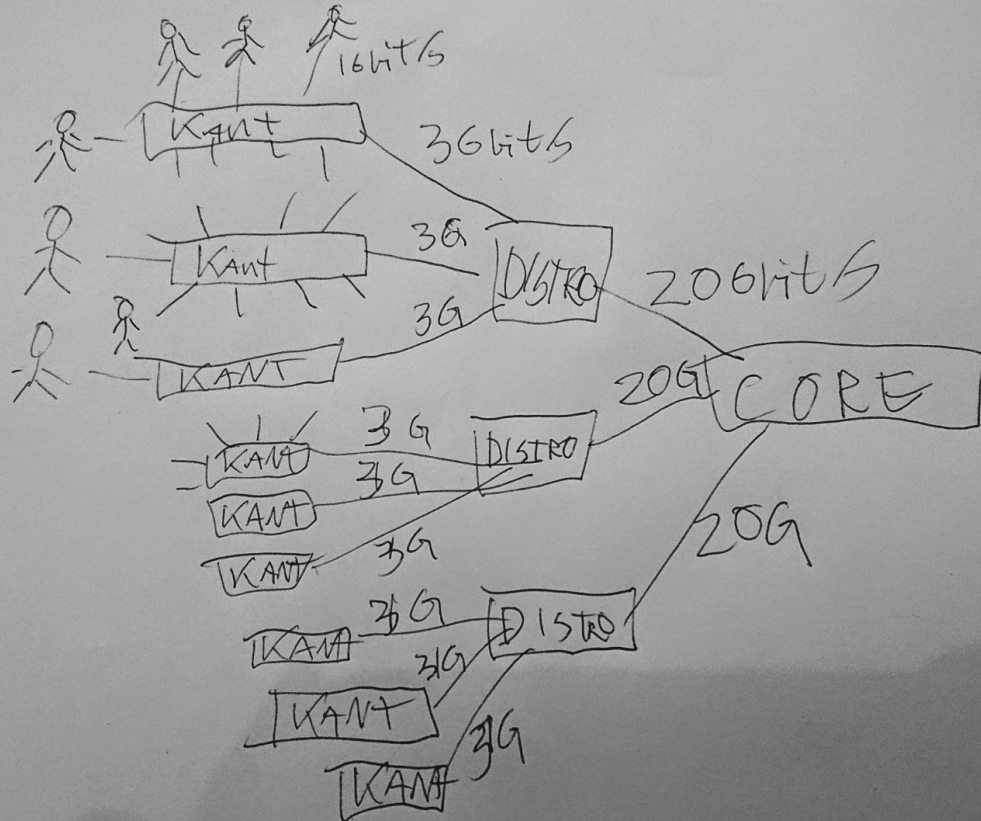 1Gbit/s
KANT
3Gbit/s
KANT
3G
DISTRO
20Gbit/s
3G
KANT
20G
CORE
KANT
3G
DISTRO
3G
KANT
3G
KANT
20G
3G
DISTRO
KANT
3G
KANT
3G
KANT